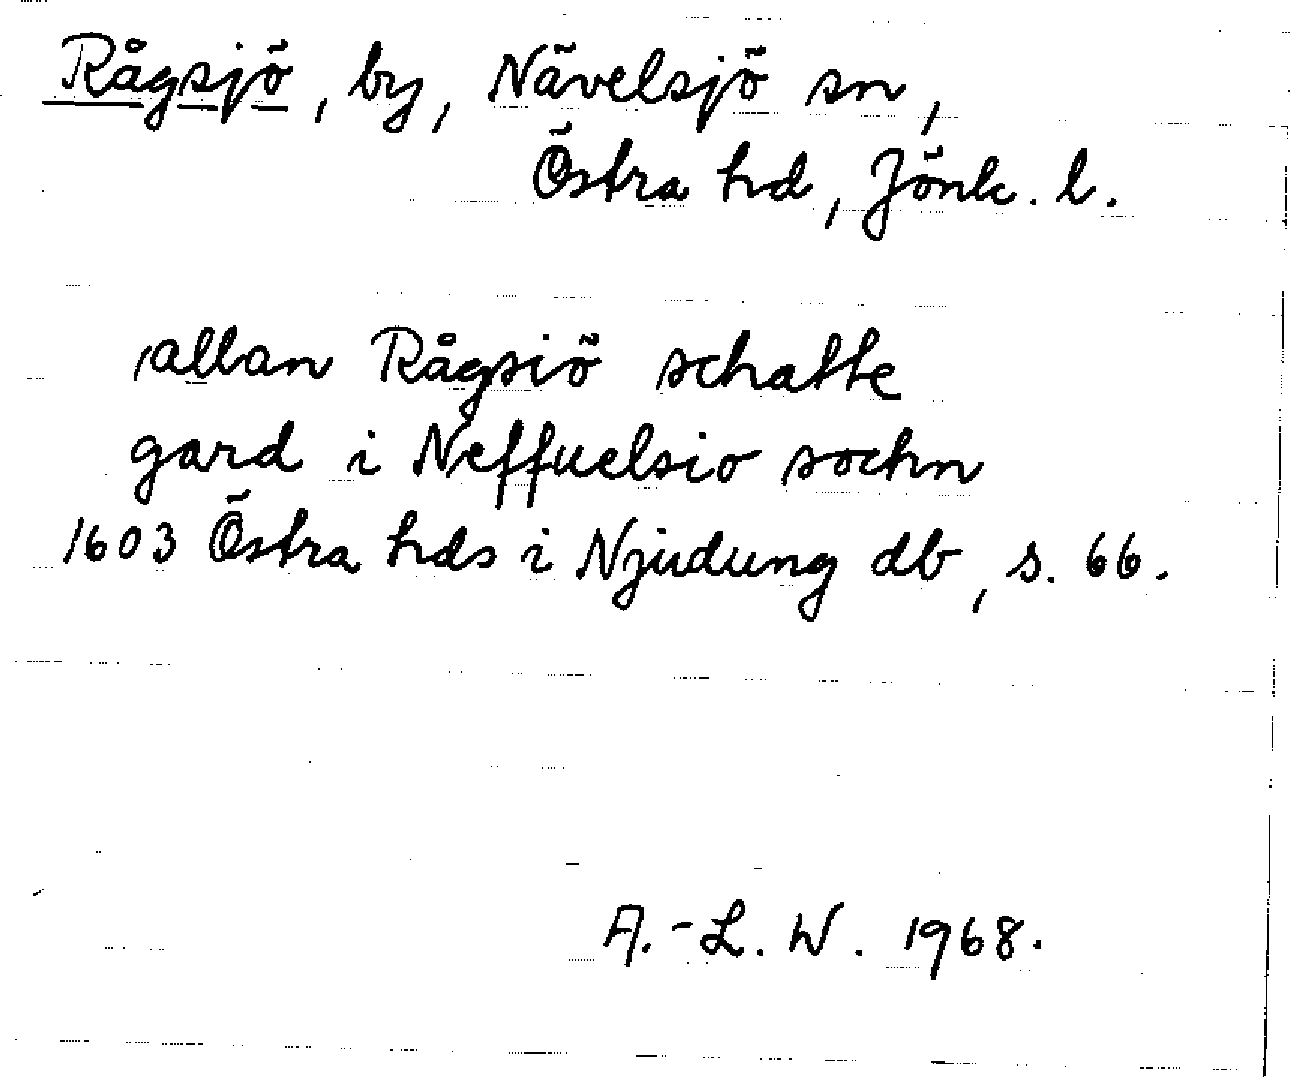 Rågsjö, by, Nävelsjö sn,
Östra hd, Jönk. l.
allan Rågsiö schatte
gard i Neffuelsio sochn
1603 Östra hds i Njudung db, s. 66.
A.-L. W. 1968.